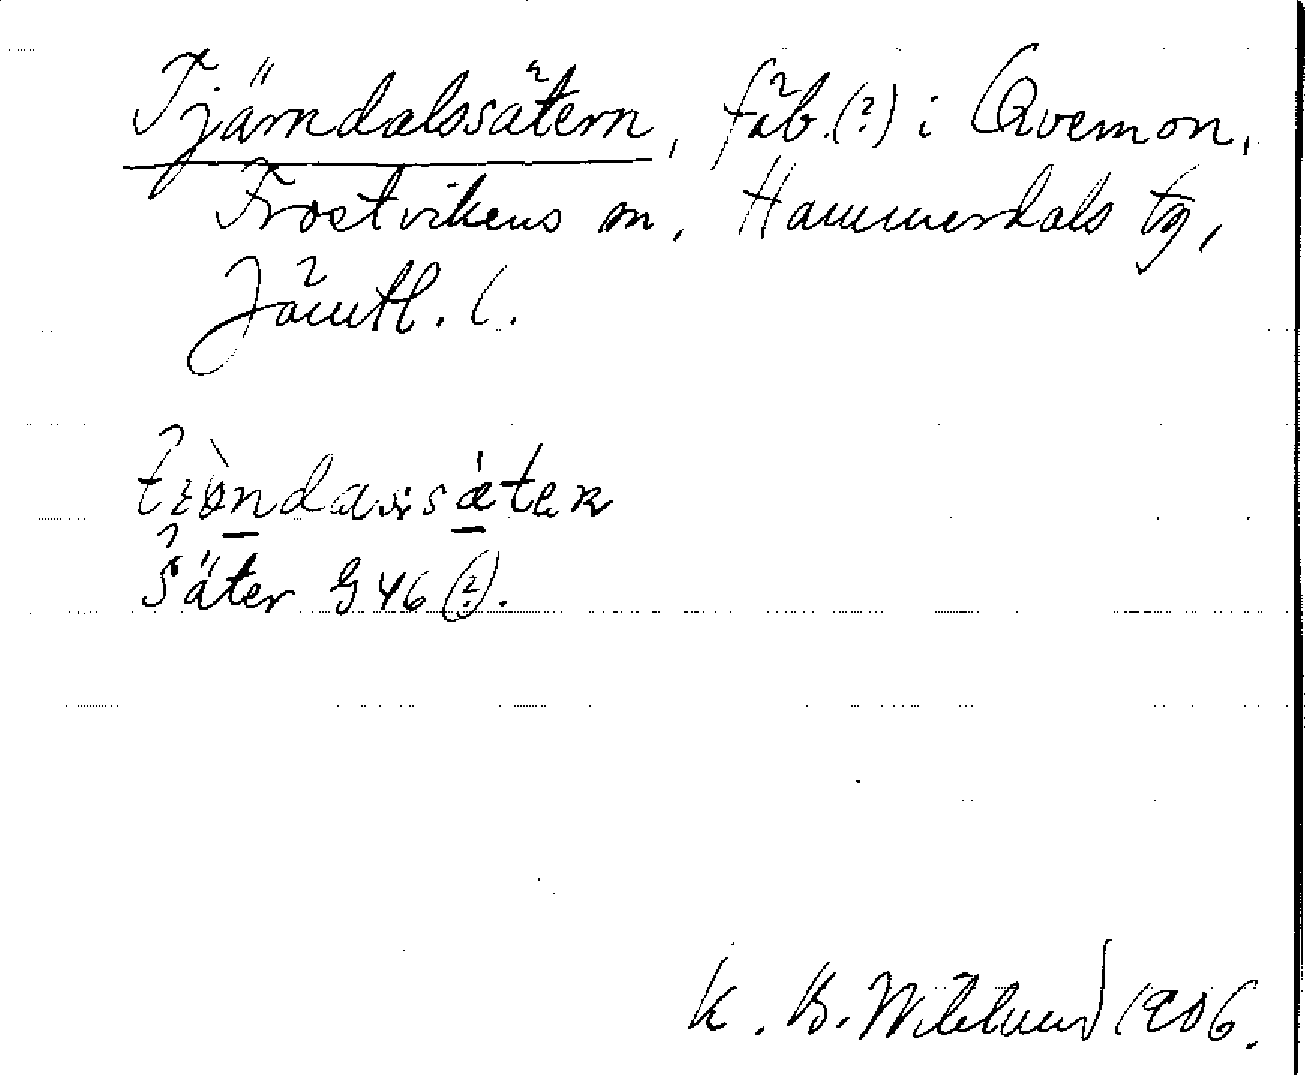 Tjärndalssätern, fäb.(?) i Qvemon,
Frostvikens sn, Hammerdals tg,
Jämtl. l.
Säter G 46 (?).
K. B. Wiklund 1906.